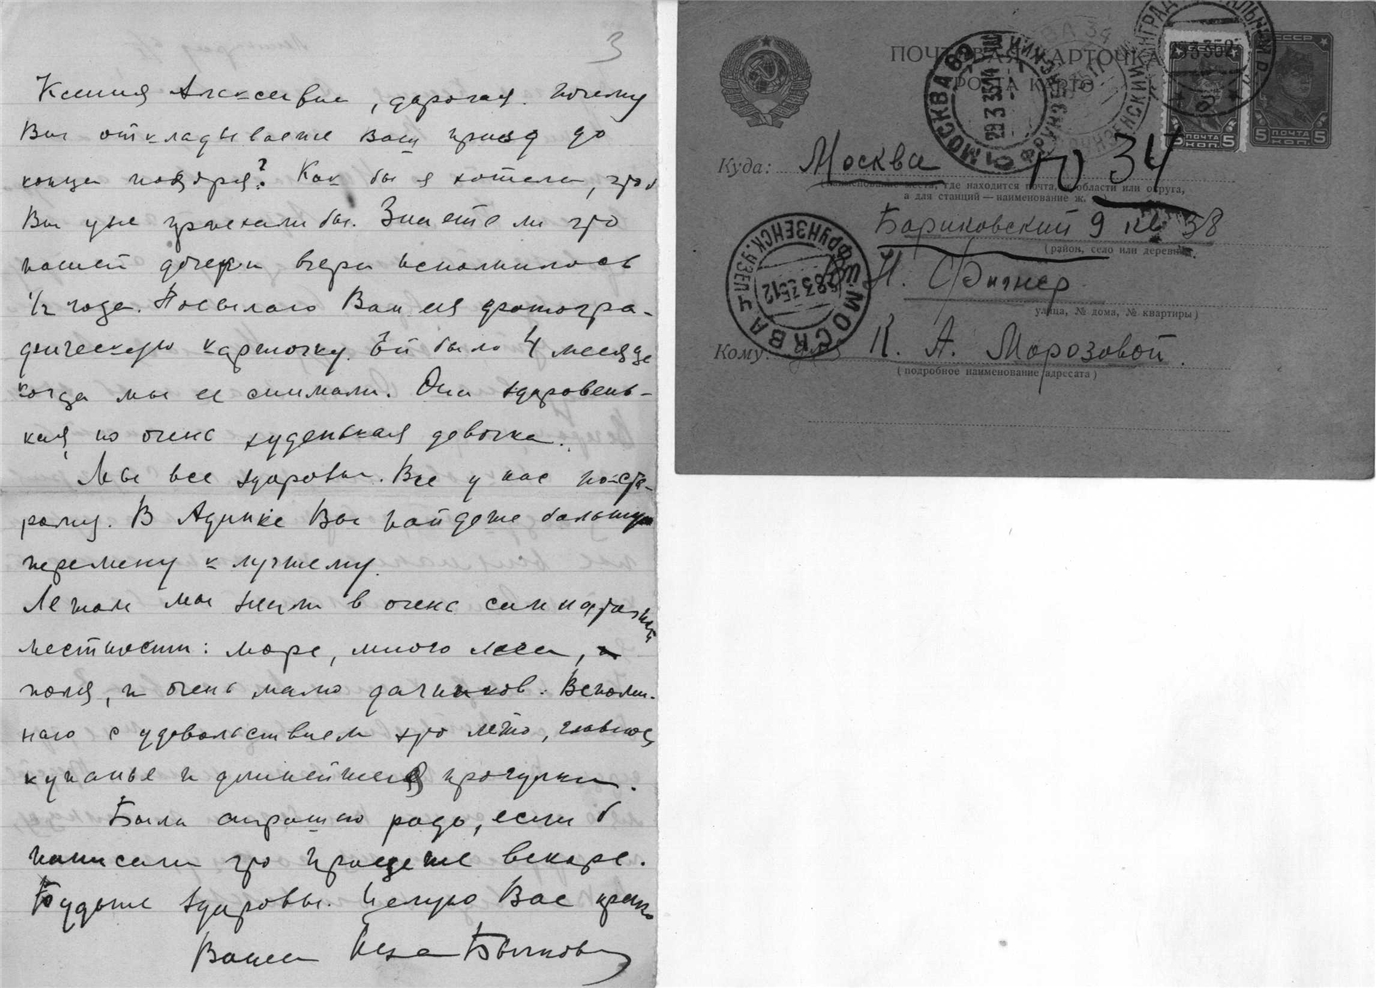 3
Ксения Алексеевна, дорогая. Почему
Вы откладываете Ваш приезд до
конца ноября? Как бы я хотела, чтоб
Вы уже приехали бы. Знаете ли что
нашей дочери вчера исполнилось
1/2 года. Посылаю Вам ея фотогра-
фическую карточку. Ей было 4 месяца
когда мы ее снимали. Она здоровень-
кая, но очень худенькая девочка.
Мы все здоровы. Все у нас по-ста-
рому. В Адинке Вы найдете большую
перемену к лучшему.
Летом мы жили в очень симпатичной
местности: море, много леса,
поля, и очень мало дачников. Вспоми-
наю с удовольствием это лето, главное,
купанье и длиннейшия прогулки.
Была страшно рада, если б
написали что приедете вскоре.
Будьте здоровы. Целую Вас крепко
Ваша Быкова
ПОЧТОВАЯ КАРТОЧКА
POŜTA KARTO
СССР
ПОЧТА
5 КОП. 5
ПОЧТА
5 КОП. 5
МОСКВА 62
МОСКВА 34
МОСКВА
Куда: Москва 34
(наименование места, где находится почта, и области или округа,
а для станций — наименование ж. д.)
Бариковский 9 кв 38
(район, село или деревня)
Н. Фигнер
улица, № дома, № квартиры)
Кому: К. А. Морозовой
(подробное наименование адресата)